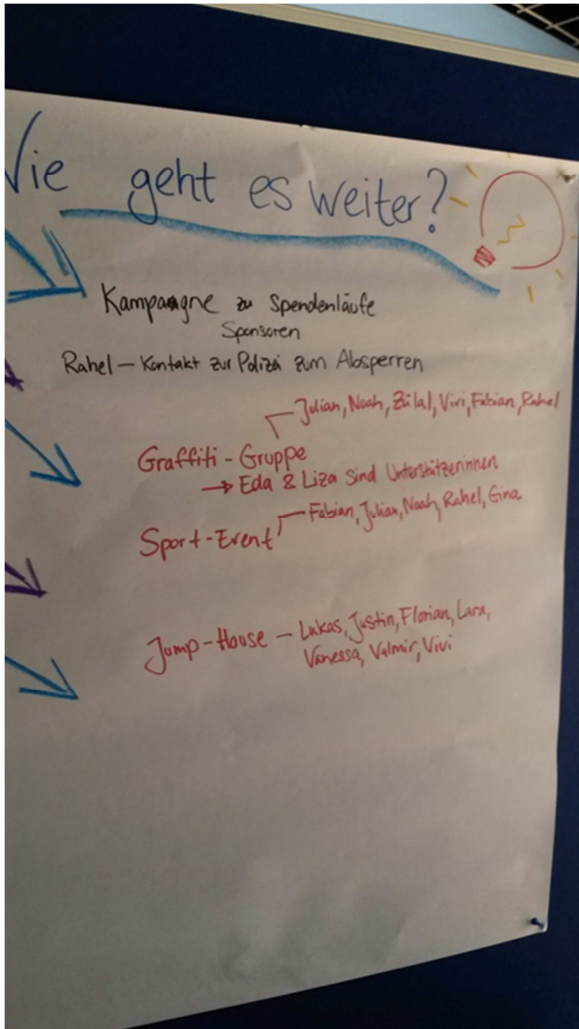 Wie geht es weiter?
Kampagne zu Spendenläufe
Sponsoren
Rahel – Kontakt zur Polizei zum Absperren
Julian, Noah, Zülal, Vivi, Fabian, Rahel
Graffiti - Gruppe
→ Eda & Liza sind Unterstützerinnen
Fabian, Julian, Noah, Rahel, Gina
Sport - Event
Jump - House – Lukas, Justin, Florian, Lara,
Vanessa, Valmir, Vivi